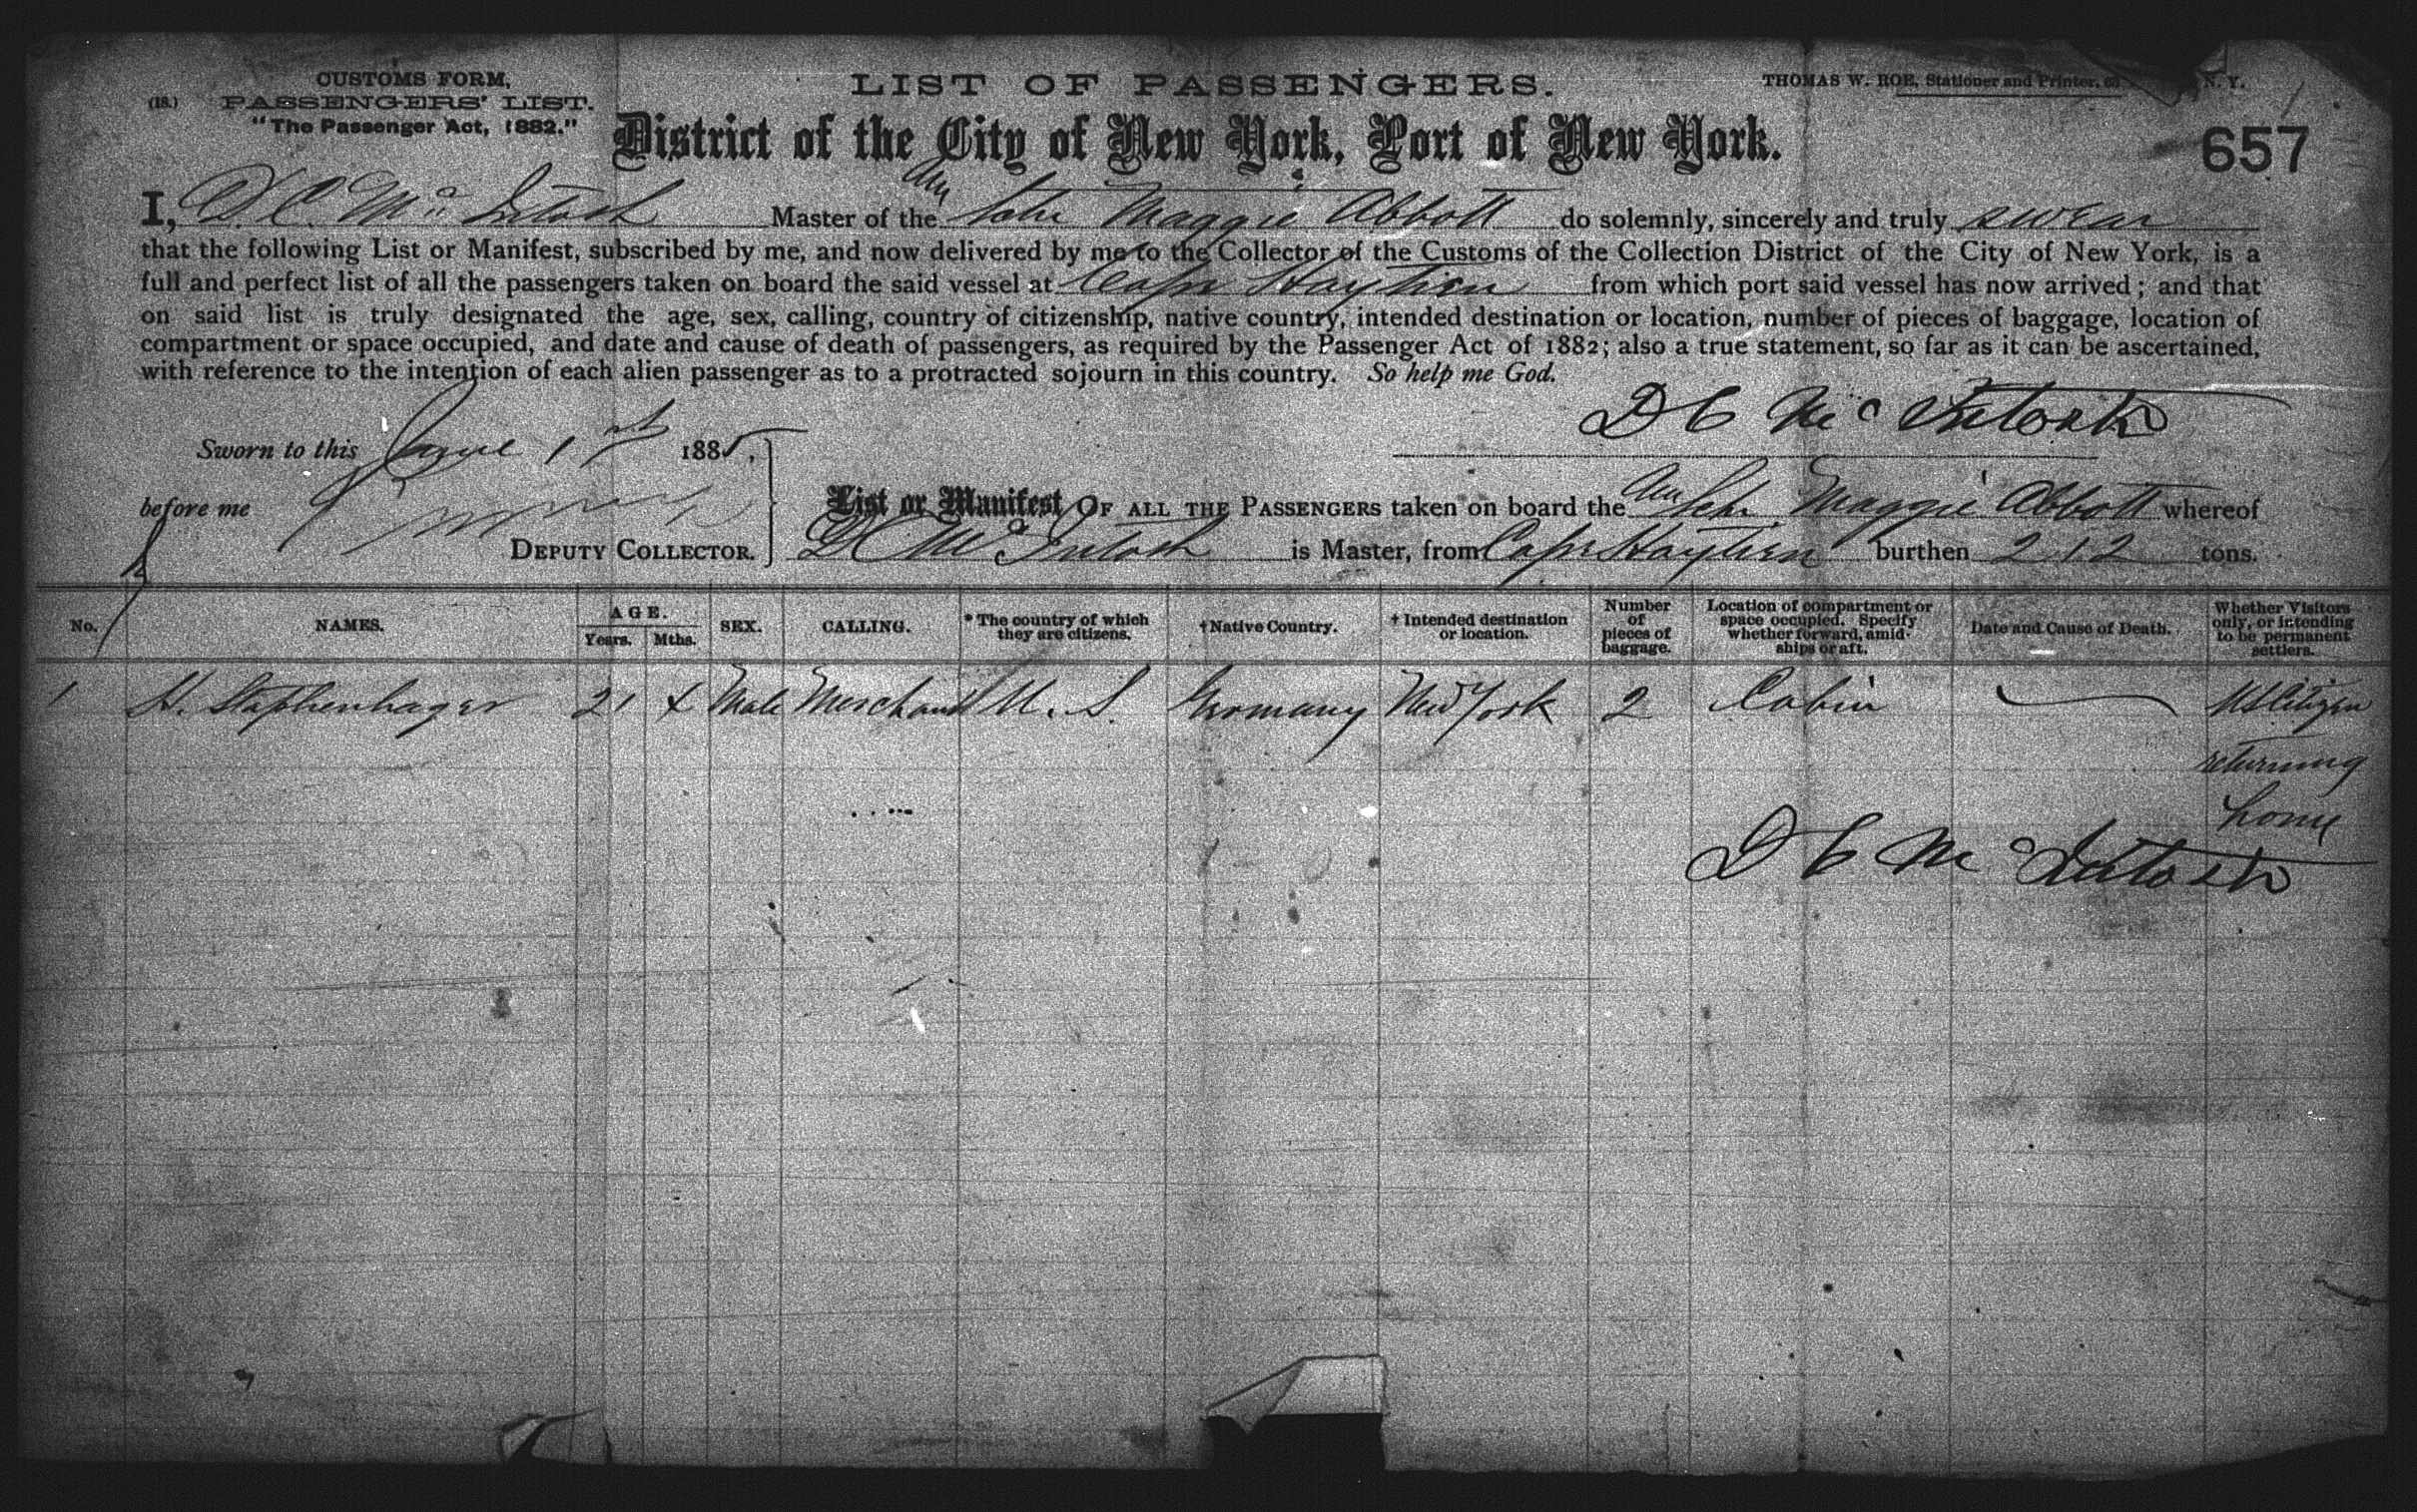 CUSTOMS FORM,
(18.) PASSENGERS' LIST.
"The Passenger Act, 1882."
LIST OF PASSENGERS.
THOMAS W. ROE, Stationer and Printer, N. Y.
District of the City of New York, Port of New York.
657
I, D. C. Mc Intosh Master of the Am Schr Maggie Abbott do solemnly, sincerely and truly swear
that the following List or Manifest, subscribed by me, and now delivered by me to the Collector of the Customs of the Collection District of the City of New York, is a
full and perfect list of all the passengers taken on board the said vessel at Cape Haytien from which port said vessel has now arrived; and that
on said list is truly designated the age, sex, calling, country of citizenship, native country, intended destination or location, number of pieces of baggage, location of
compartment or space occupied, and date and cause of death of passengers, as required by the Passenger Act of 1882; also a true statement, so far as it can be ascertained,
with reference to the intention of each alien passenger as to a protracted sojourn in this country. So help me God.
D C Mc Intosh
Sworn to this June 1st 1885,
before me
DEPUTY COLLECTOR.
List or Manifest OF ALL THE PASSENGERS taken on board the Am Schr. Maggie Abbott whereof
D C Mc Intosh is Master, from Cape Haytien burthen 212 tons.
No. NAMES. AGE. Years. Mths. SEX. CALLING. * The country of which they are citizens. † Native Country. † Intended destination or location. Number of pieces of baggage. Location of compartment or space occupied. Specify whether forward, amidships or aft. Date and Cause of Death. Whether Visitors only, or intending to be permanent settlers.
1 H. Staphenhager 21 x Male Merchant U. S. Germany New York 2 Cabin US Citizen
returning
home
D C Mc Intosh